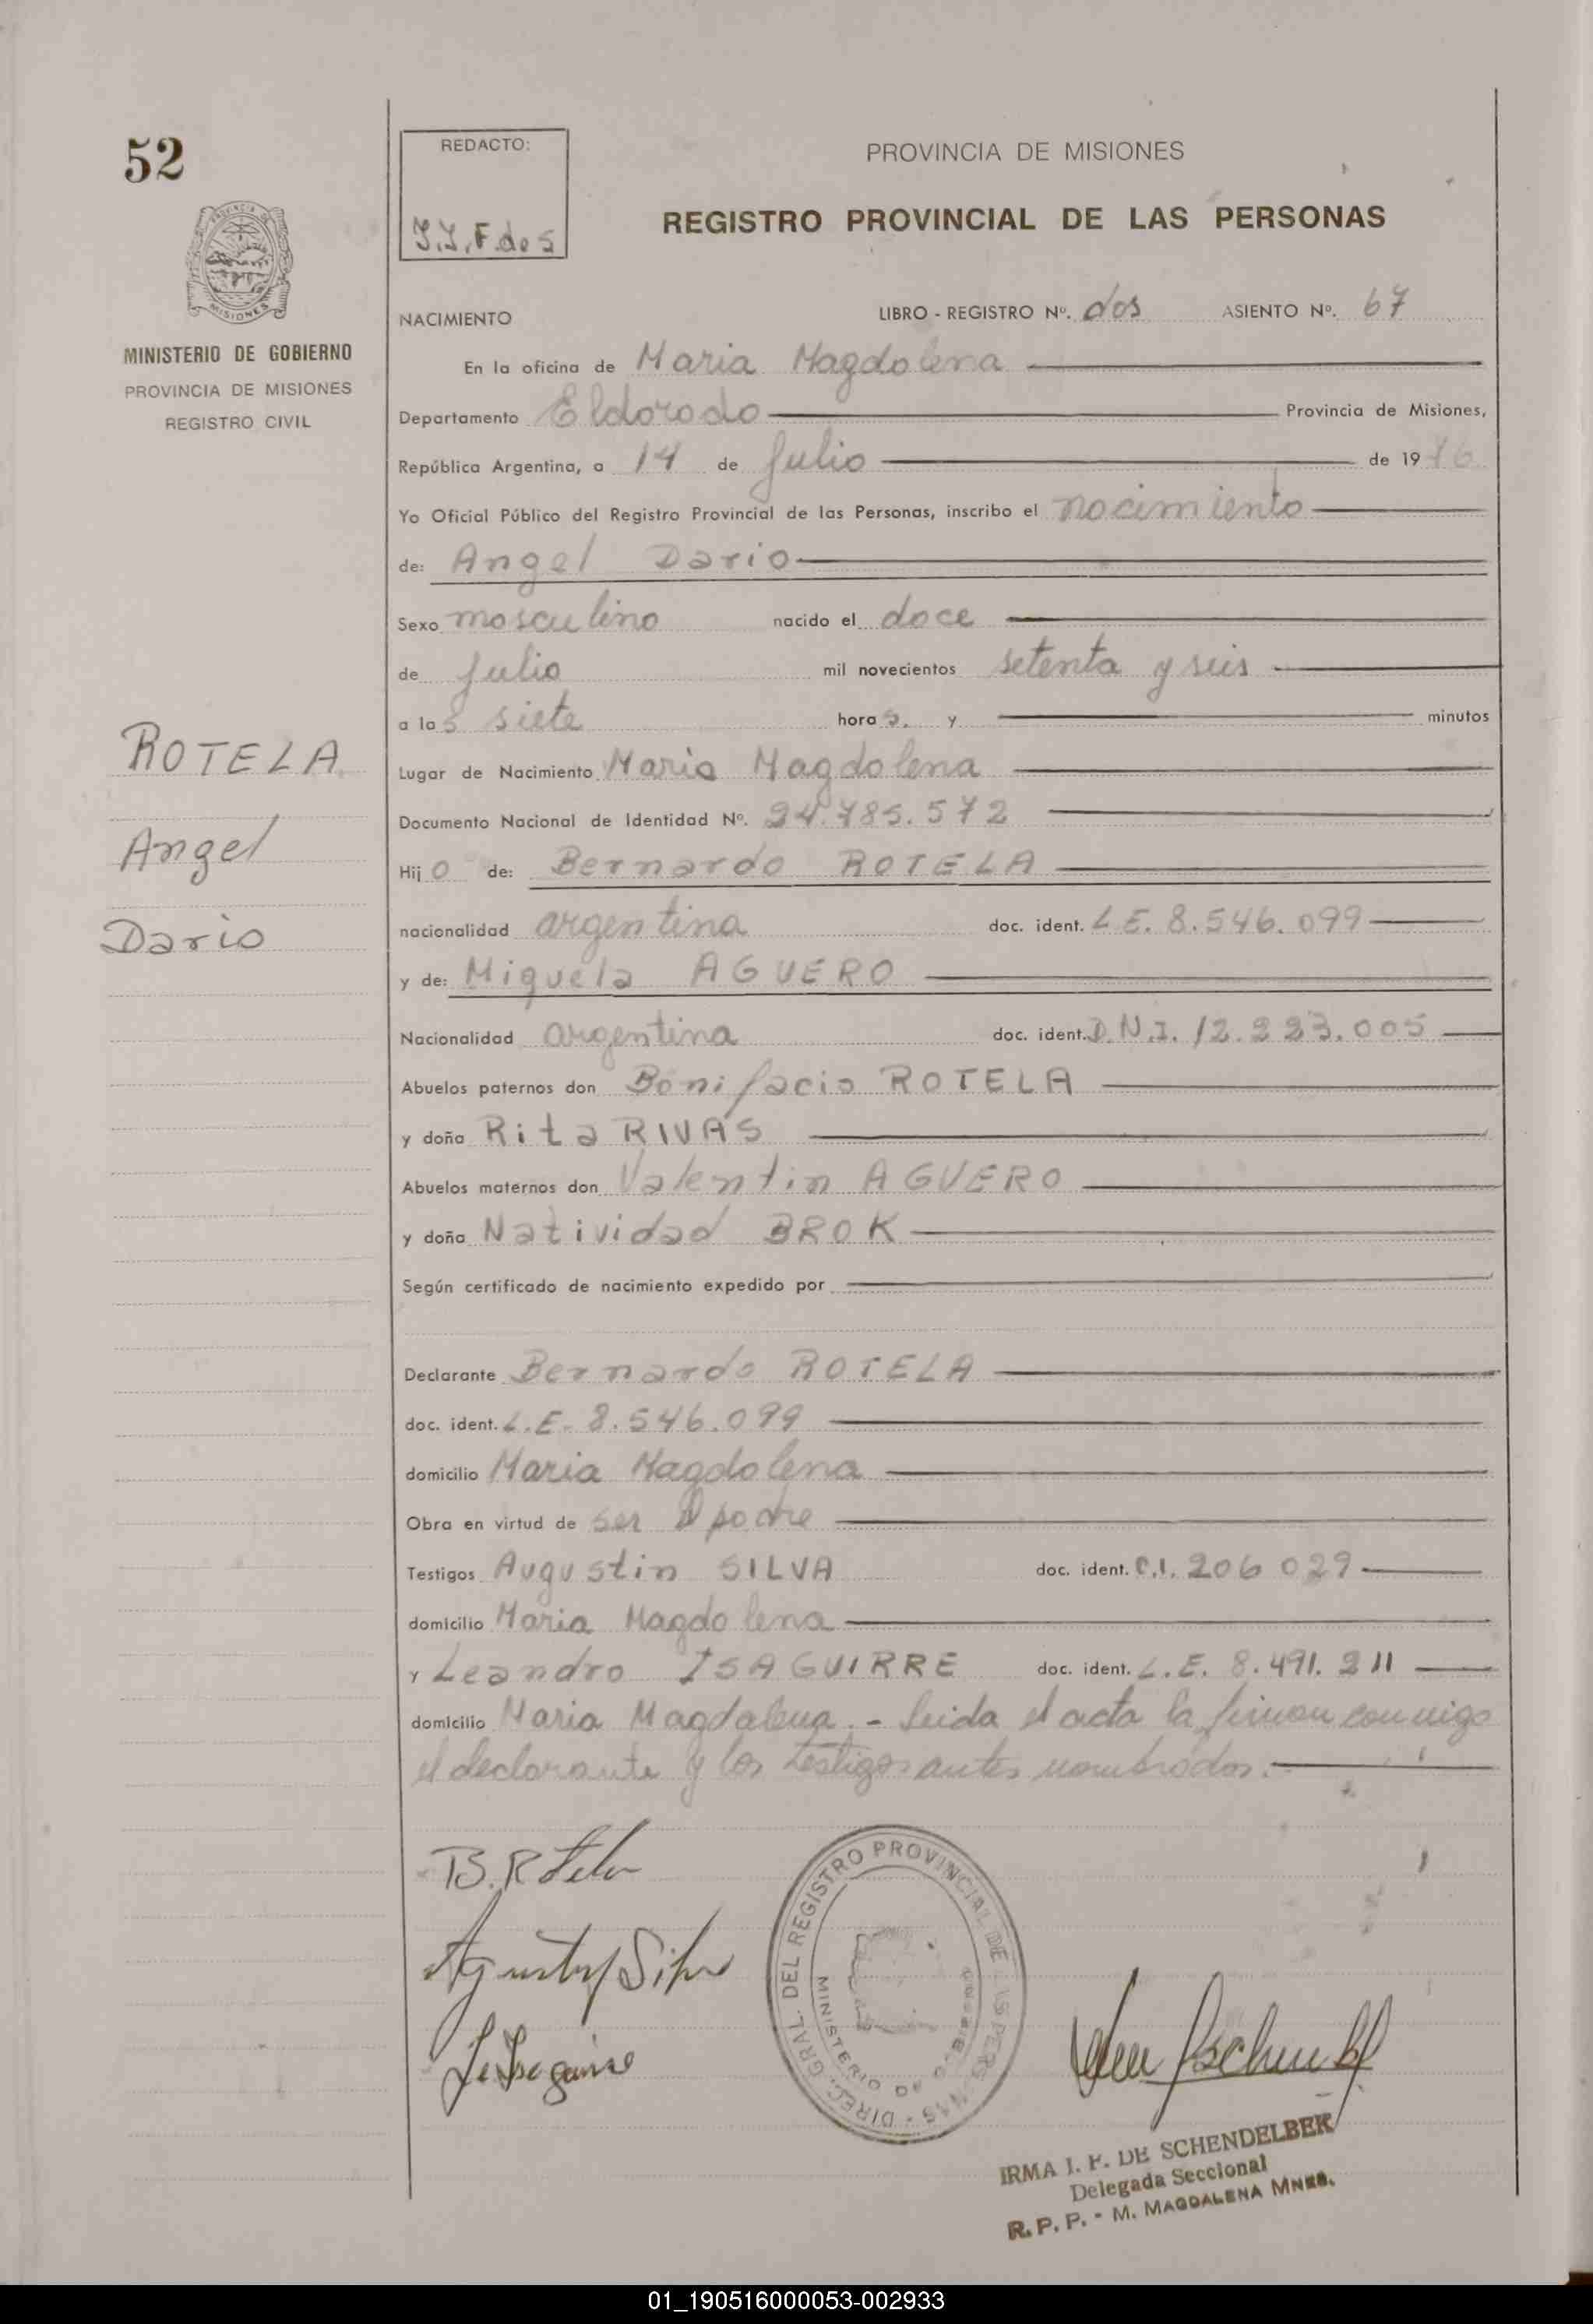 52
REDACTO:
PROVINCIA DE MISIONES
REGISTRO PROVINCIAL DE LAS PERSONAS
MISIONES
MINISTERIO DE GOBIERNO
PROVINCIA DE MISIONES
REGISTRO CIVIL
NACIMIENTO
LIBRO - REGISTRO Nº. dos ASIENTO Nº. 67
En la oficina de Maria Magdalena
Departamento Eldorado Provincia de Misiones,
República Argentina, a 14 de Julio de 1976
Yo Oficial Público del Registro Provincial de las Personas, inscribo el nacimiento
de: Angel Dario
Sexo masculino nacido el doce
de Julio mil novecientos setenta y seis
a las siete horas. y minutos
ROTELA
Angel
Dario
Lugar de Nacimiento Maria Magdalena
Documento Nacional de Identidad Nº. 24.785.572
Hijo de: Bernardo ROTELA
nacionalidad argentina doc. ident. L.E. 8.546.099
y de: Miguela AGUERO
Nacionalidad argentina doc. ident. D.N.I. 12.223.005
Abuelos paternos don Bonifacio ROTELA
y doña Rita RIVAS
Abuelos maternos don Valentin AGUERO
y doña Natividad BROK
Según certificado de nacimiento expedido por
Declarante Bernardo ROTELA
doc. ident. L.E. 8.546.099
domicilio Maria Magdalena
Obra en virtud de ser padre
Testigos Augustin SILVA doc. ident. C.I. 206 029
domicilio Maria Magdalena
y Leandro ISAGUIRRE doc. ident. L.E. 8.491.211
domicilio Maria Magdalena.- Leida el acta la firman conmigo
el declarante y los testigos antes nombrados.
B. Rotela
DIREC. GRAL. DEL REGISTRO PROVINCIAL DE LAS PERSONAS
MINISTERIO DE GOBIERNO
IRMA I. F. DE SCHENDELBEK
Delegada Seccional
R. P. P. - M. MAGDALENA MNES.
01_190516000053-002933